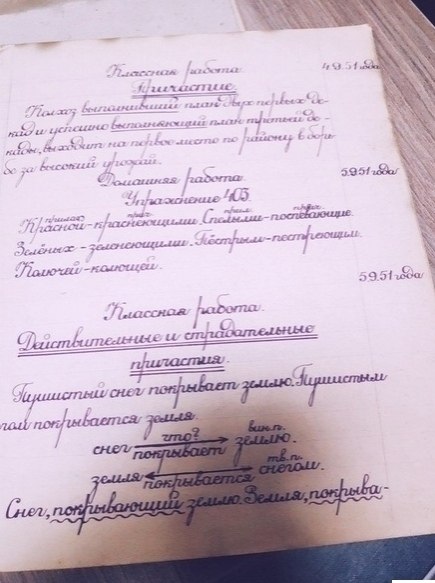 Классная работа. 4.9.51 года
Причастие.
Колхоз выполнивший план двух первых де-
кад и успешно выполняющий план третьей де-
кады, выходит на первое место по району в борь-
бе за высокий урожай.
Домашняя работа. 5.9.51 года
Упражнение 403.
прилаг. прич. прил. прич.
Красной-краснеющими. Спелыми-поспевающие.
Зелёных-зеленеющими. Пёстрым-пестреющим.
Колючей-колющей.
5.9.51 года
Классная работа.
Действительные и страдательные
причастия.
Пушистый снег покрывает землю. Пушистым
гом покрывается земля.
что? вин.п.
снег покрывает землю.
тв.п.
земля покрывается снегом.
Снег, покрывающий землю. Земля, покрыва-